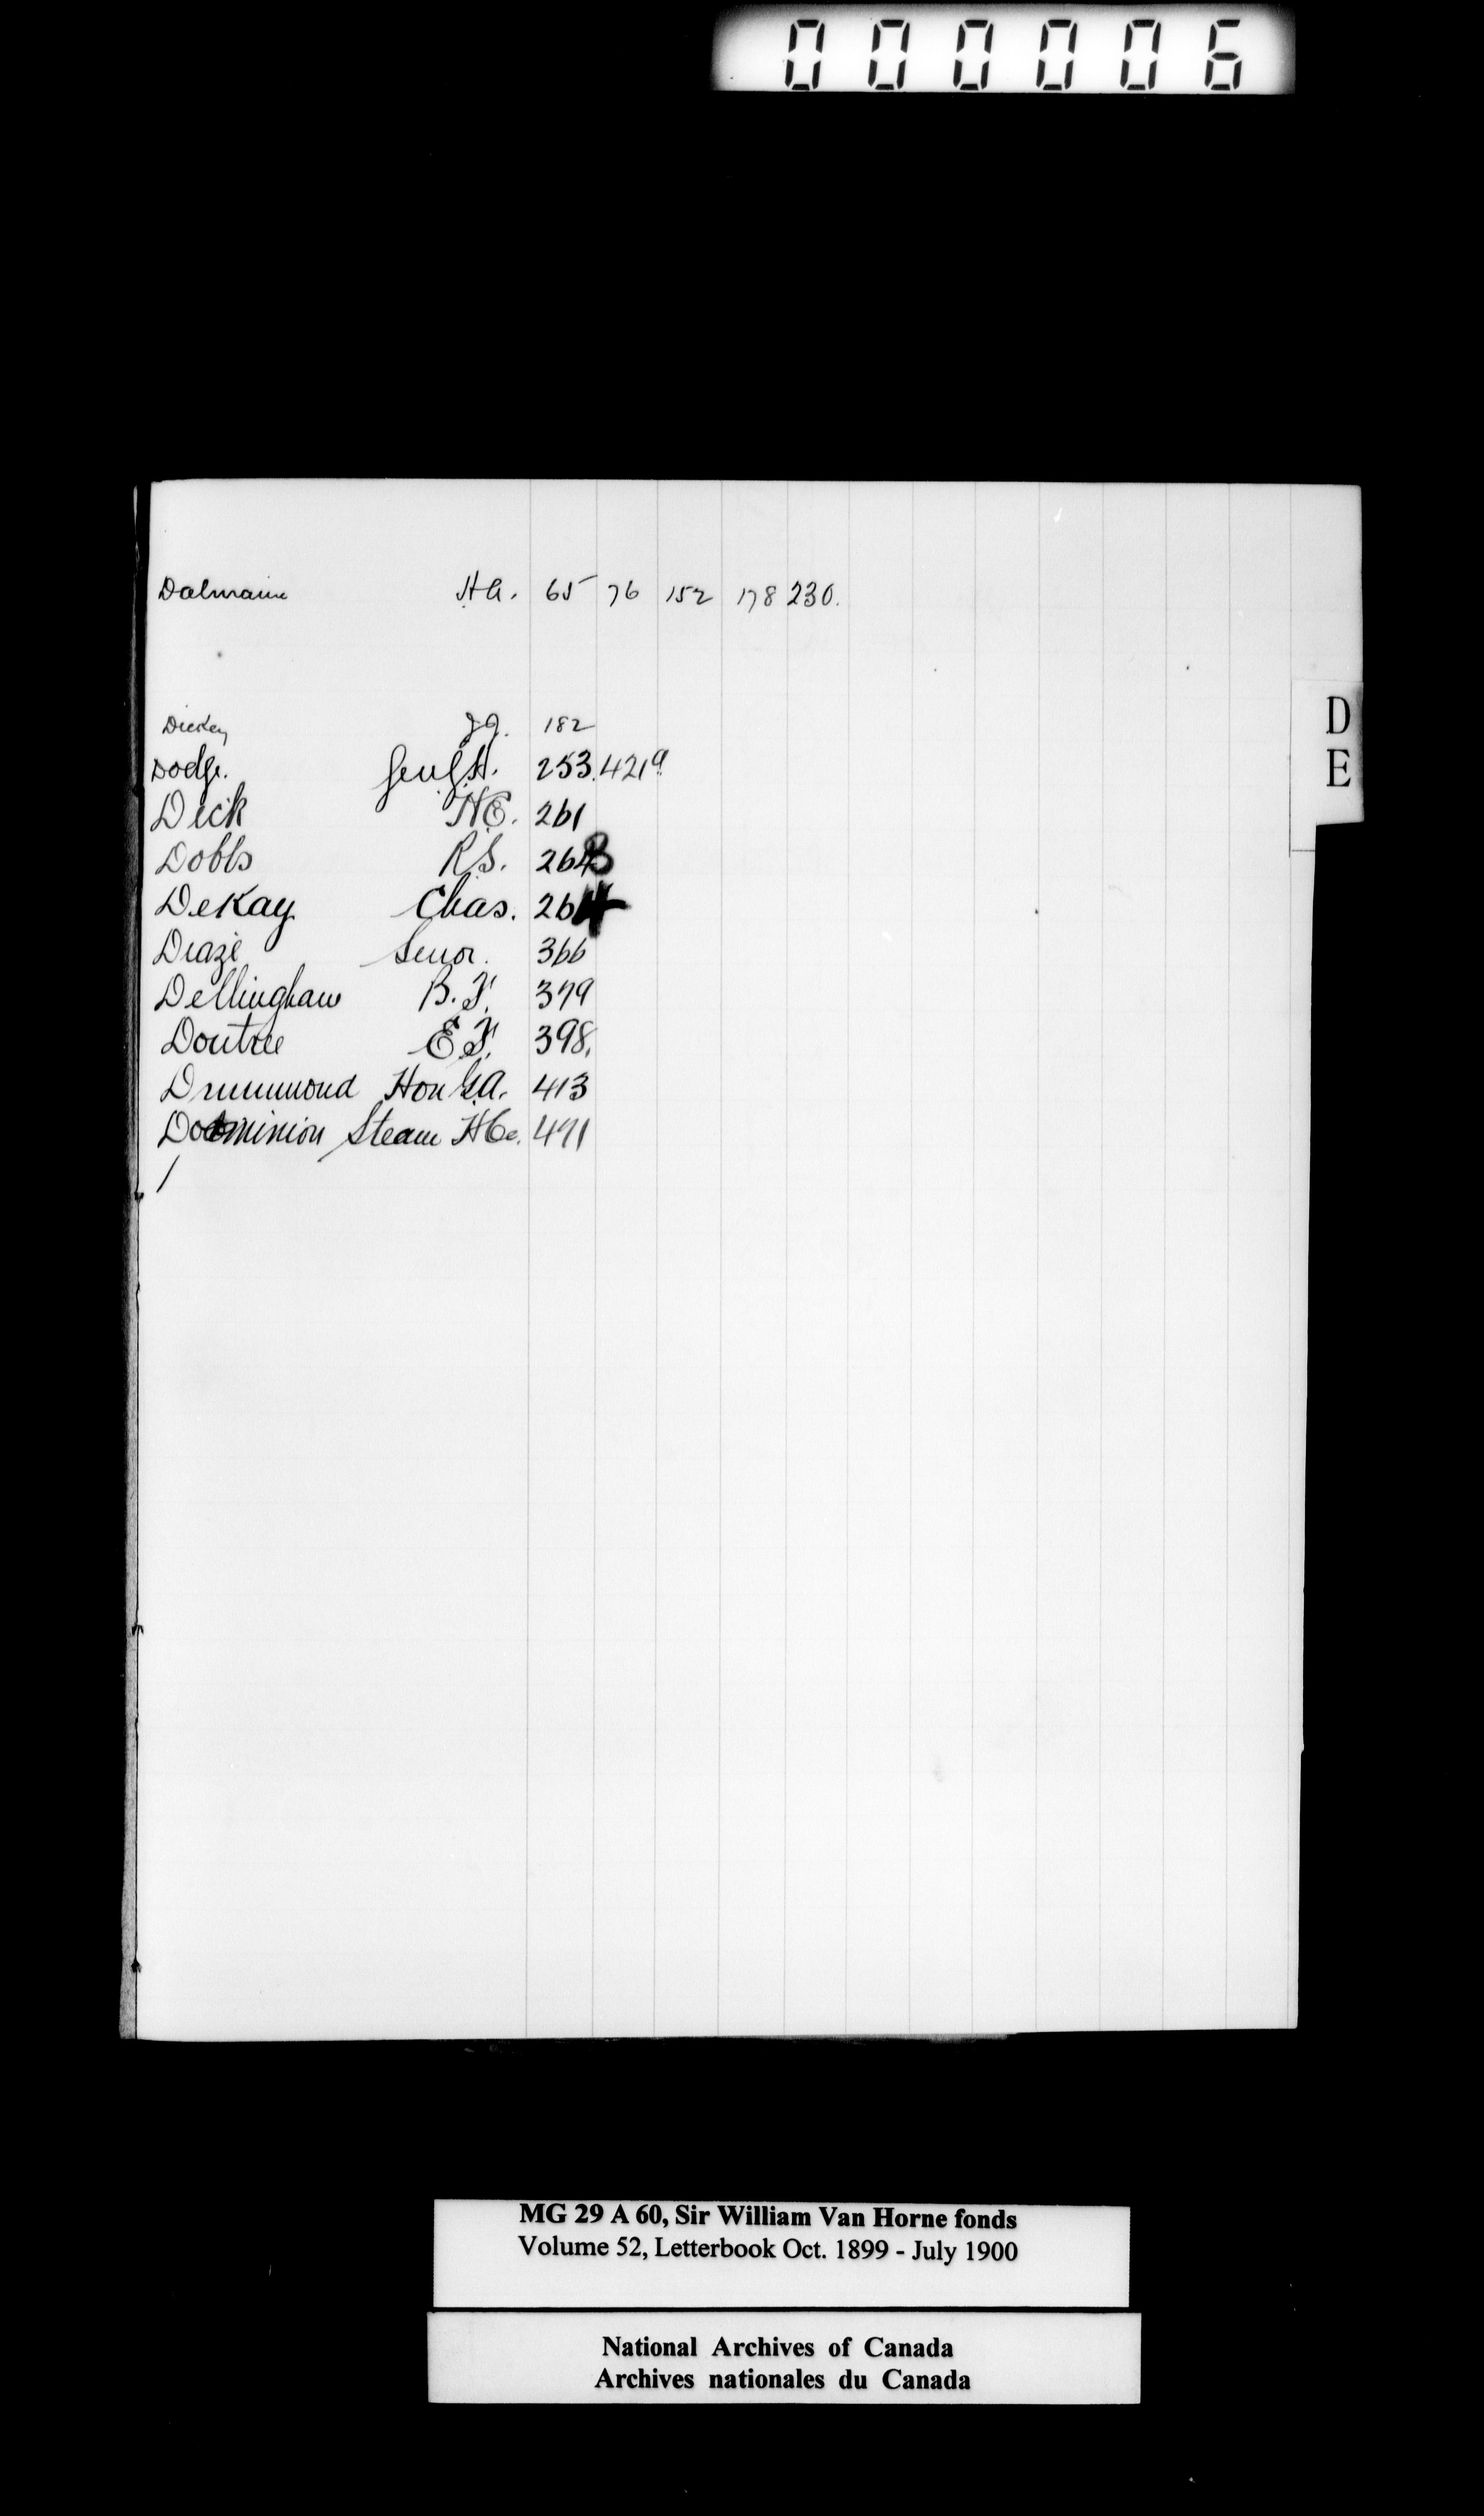 000006
Dalmaine H.A. 65 76 152 178 230.
D
E
Dickey J.J. 182
Dodge. Genl H. 253. 421
Dick H.E. 261
Dobbs R.S. 263
DeKay Chas. 264
Diaze Senor. 366
Dellingham B.F. 379
Doutree E.F. 398.
Drummond Hon G.A. 413
Dominion Steam Co. 471
MG 29 A 60, Sir William Van Horne fonds
Volume 52, Letterbook Oct. 1899 - July 1900
National Archives of Canada
Archives nationales du Canada